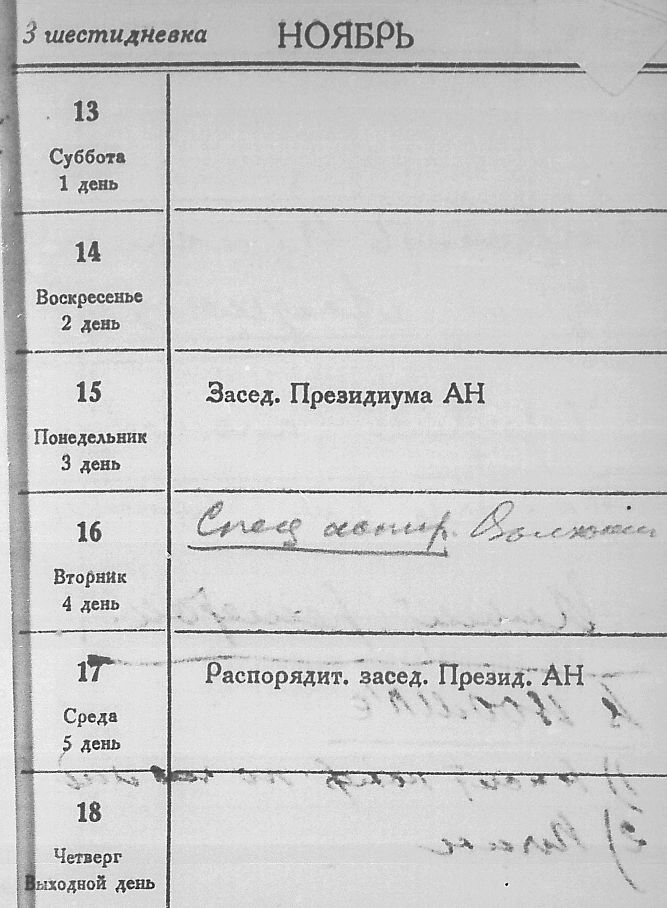 3 шестидневка
НОЯБРЬ
13
Суббота
1 день
14
Воскресенье
2 день
15
Понедельник
3 день
Засед. Президиума АН
16
Вторник
4 день
Спец аспир.
17
Среда
5 день
Распорядит. засед. Презид. АН
18
Четверг
Выходной день